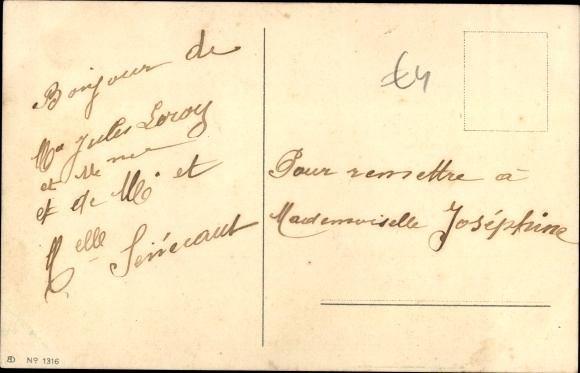 Bonjour de
Mr Jules Leroy
et Mme
et de Mr et
Melle Sénécaut
€4
Pour remettre à
Mademoiselle Joséphine
No 1316